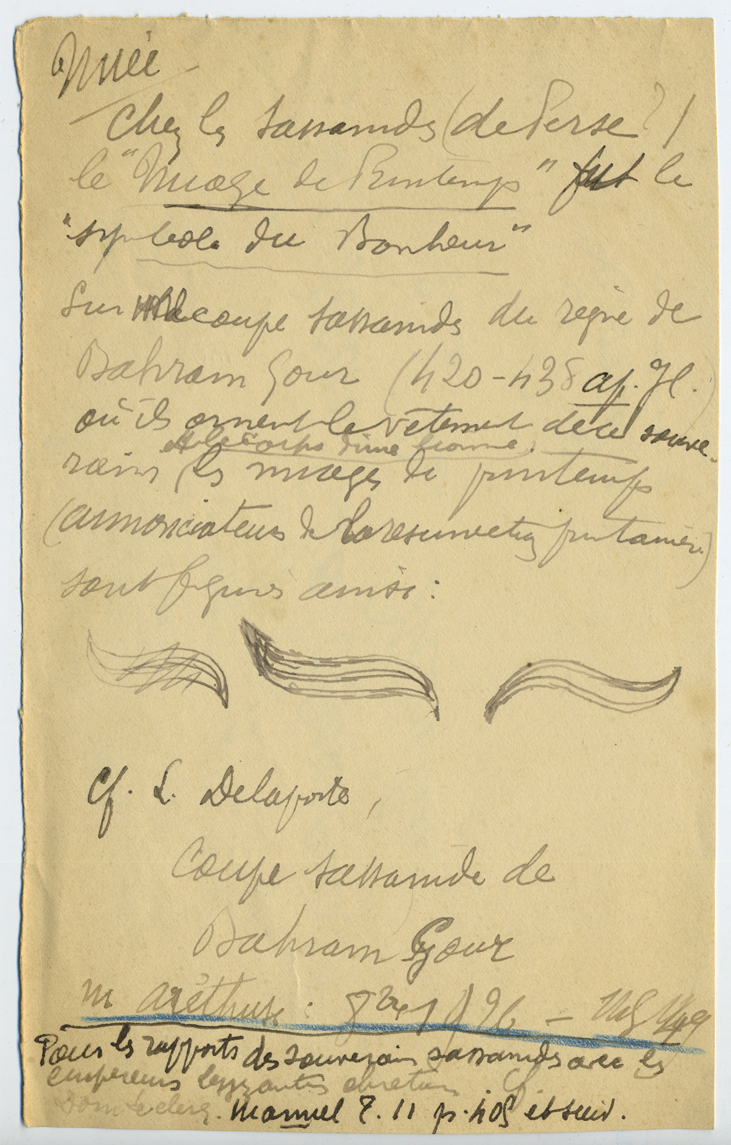 Nuée
Chez les Sassanides (de Perse ?)
le "Nuage de Printemps" fut le
"symbole du Bonheur"
Sur coupe sassanide du règne de
Bahram Gour (420-438 ap. J.C.)
où ils ornent le vêtement de ce souve-
et le corps d'une
rain les nuages de printemps
(annonciateurs de la résurrection printanière)
sont figurés ainsi :
Cf. L. Delaporte,
Coupe sassanide de
Bahram Gour
in Aréthuse : 8bre 1926 –
Pour les rapports des souverains sassanides avec les
empereurs byzantins chrétiens Cf.
Manuel T. II p. 405 et suiv.